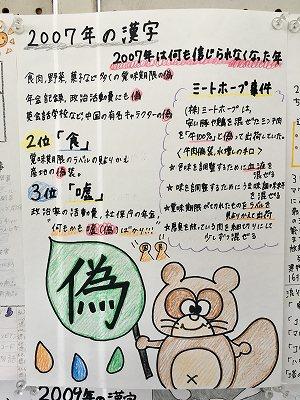 2007年の漢字
2007年は何も信じられなくなった年
食肉、野菜、菓子など多くの賞味期限の偽
年金記録、政治活動費にも偽
英会話学校など中国の有名キャラクターの偽
2位「食」
賞味期限のラベルの貼りかえ
産地の偽装。
3位「嘘」
政治家の活動費、社保庁の年金
"何もかも嘘(偽)ばっかり!!!
ミートホープ事件
(株)ミートホープは、
安い豚や鶏を混ぜたミンチ肉
を「牛100%」と偽って出荷していた。
<牛肉偽装、水増しの手口>
★色味を調整するために血液を
混ぜる
★味を調整するためにうま味調味料
を混ぜる
★賞味期限が切れたものをラベルを
貼りかえて出荷
★悪臭を放っている肉を細切りにして
少しずつ混ぜる
偽
2009年の漢字